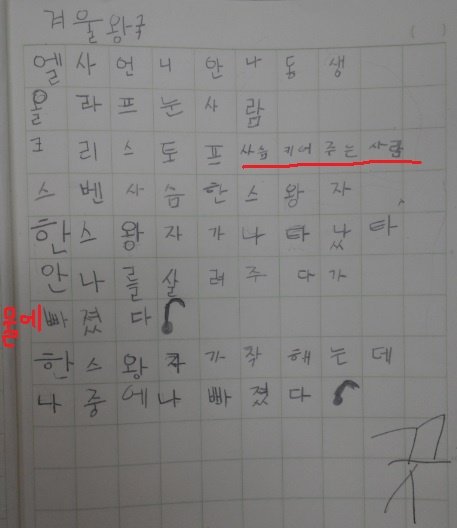 겨울왕국
엘사언니안나동생
올라프눈사람
크리스토프사슴키어주는사람
스벤사슴한스왕자
한스왕자가나타났타
안나를살려주다가
물에 빠졌다
한스왕자가착해는데
나중에나빠졌다
끗